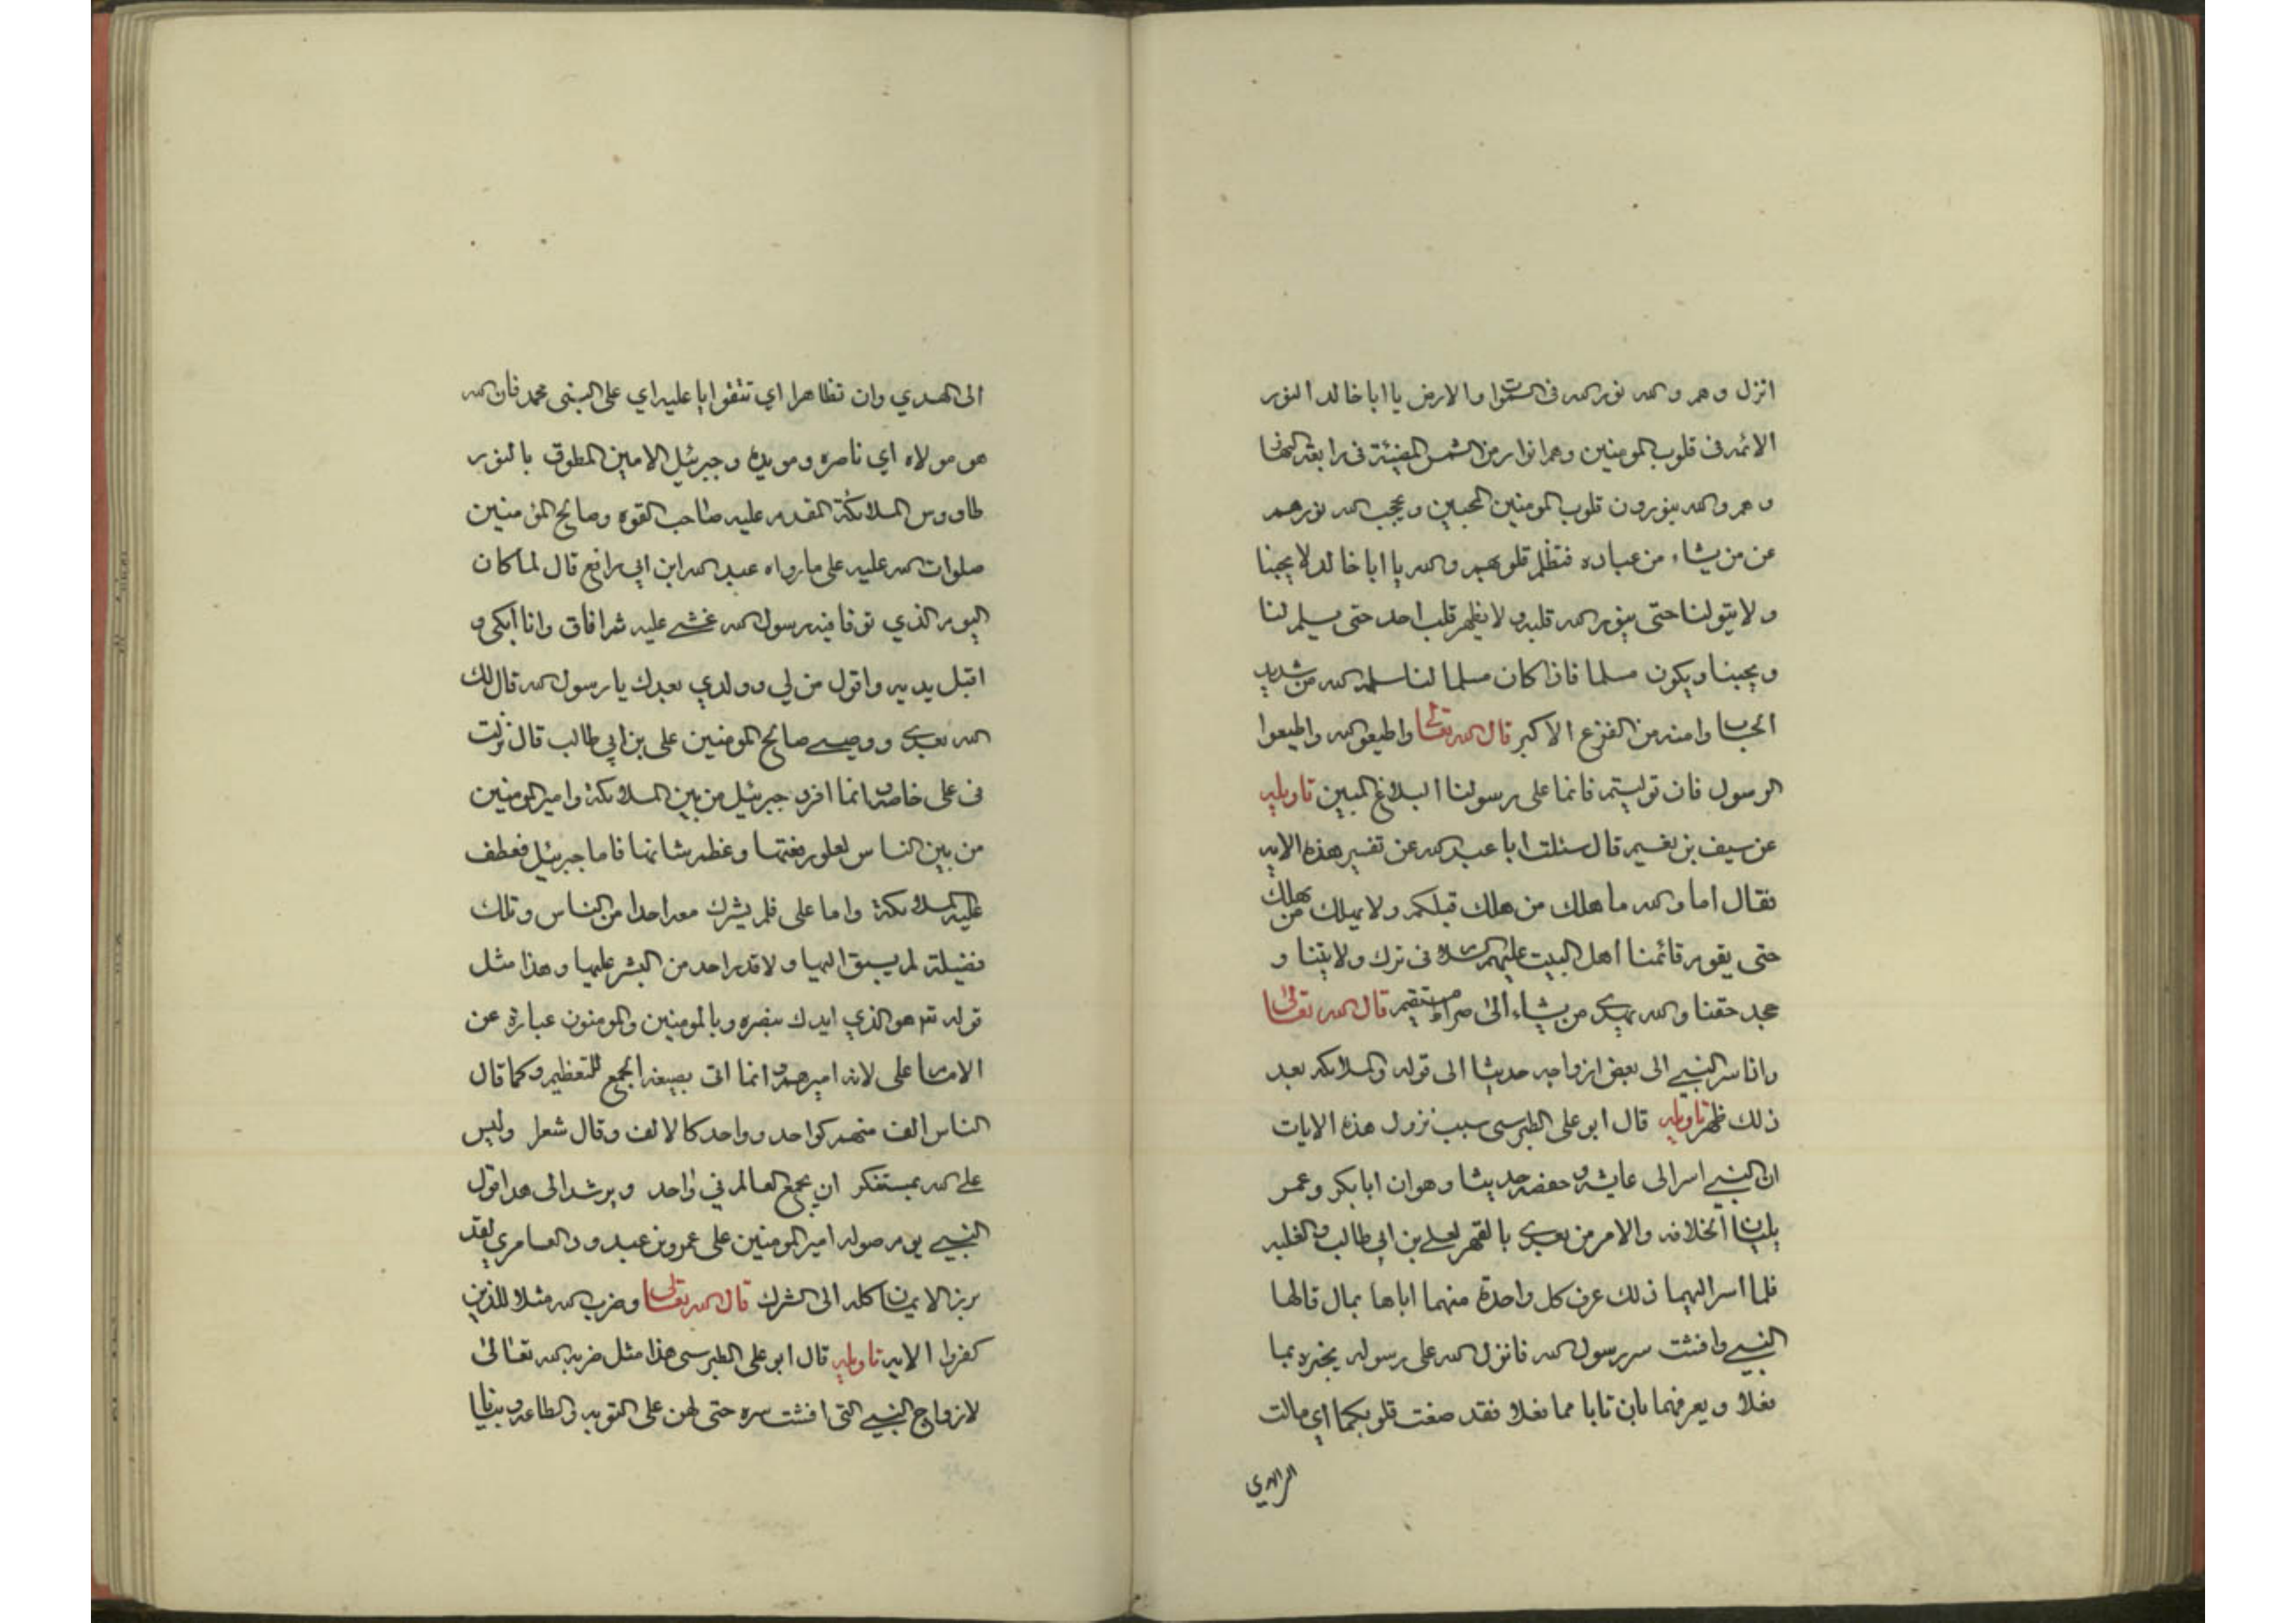 انزل وهم والله نور الله في السموات والارض يا ابا خالد النور
الائمه في قلوب المومنين وهم انوار من الشمس المضيئة في رابعة النهار
وهم والله ينورون قلوب المومنين المحبين ويحجب الله نورهم
عن من يشاء من عباده فتظلم قلوبهم والله يا ابا خالد لا يحبنا
ولا يتولنا حتى ينور الله قلبه ولا يظهر قلب احد حتى يسلم لنا
ويحبنا ويكون مسلما فاذا كان مسلما لنا سلمه الله من شديد
الحساب وامنه من الفزع الاكبر قال الله تعالى واطيعوا الله واطيعوا
الرسول فان توليتم فانما على رسولنا البلاغ المبين تاويله
عن سيف بن نفسير قال سئلت ابا عبد الله عن تفسير هذه الايه
فقال اما والله ما هلك من هلك قبلكم ولا يهلك من يهلك
حتى يقوم قائمنا اهل البيت عليهم السلام في ترك ولايتنا و
جحد حقنا والله يهدي من يشاء الى صراط مستقيم قال الله تعالى
واذا سر النبي الى بعض ازواجه حديثا الى قوله والملائكه بعد
ذلك ظهر تاويله قال ابو على الطبرسي سبب نزول هذه الايات
ان النبي اسر الى عايشه وحفصه حديثا وهو ان ابا بكر وعمر
يليان الخلافه والامر من بعدي بالقهر لعلي بن ابي طالب والغلبه
فلما اسر اليهما ذلك عرف كل واحدة منهما اباها بمال قالها
النبي وافشت سر رسول الله فانزل الله على رسوله يخبره بما
فعلا ويعرفهما بان تابا مما فعلا فقد صغت قلوبكما اي مالت
الى الهدي
الى الهدي وان تظاهرا اي تتفوا ابا عليه اي على النبي محمد فان الله
هو مولاه اي ناصره ومويده وجبرئيل الامين المطوق بالنور
طاووس الملائكة المقدم عليه صاحب القوه وصالح المؤمنين
صلوات الله عليه على ما رواه عبد الله ابن ابي رافع قال لما كان
اليوم الذي توفا فيه رسول الله غشي عليه ثم افاق وانا ابكي و
اقبل يديه واقول من لي وولدي بعدك يا رسول الله قال لك
الله بعدي ووصيي صالح المومنين على بن ابي طالب قال نزلت
في على خاصه وانما افرد جبرئيل من بين الملائكة وامير المومنين
من بين الناس لعلو رفعتهما وعظم شانهما فاما جبرئيل فعطف
عليه الملائكة واما على فلم يشرك معه احدا من الناس وتلك
فضيلة لم يسبق اليها ولا قدر احد من البشر عليها وهذا مثل
قوله تم هو الذي ايدك بنصره وبالمومنين والمومنون عبارة عن
الامام على لانه اميرهم وانما اتى بصيغة الجمع للتعظيم وكما قال
الناس الف منهم كواحد وواحد كالالف وقال شعرا وليس
على الله بمستنكر ان يجمع العالم في واحد ويرشد الى هذا قول
النبي يوم صوله امير المومنين على عمرو بن عبد ود العامري لقد
برز الايمان كله الى الشرك قال الله تعالى وضرب الله مثلا للذين
كفروا الايه تاويله قال ابو على الطبرسي هذا مثل ضربه الله تعالى
لازواج النبي التي افشت سره حتى لهن على التوبه والطاعه وبيانا